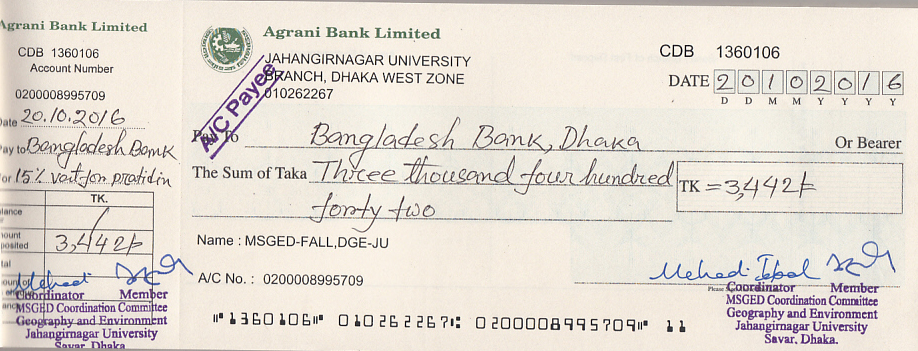 Agrani Bank Limited
CDB 1360106
Account Number
0200008995709
Date 20.10.2016
Pay to Bangladesh Bank
for 15% vat for pratidin
TK.
3,442/-
Mehedi
Coordinator Member
MSGED Coordination Committee
Geography and Environment
Jahangirnagar University
Savar, Dhaka.
Agrani Bank Limited
JAHANGIRNAGAR UNIVERSITY
BRANCH, DHAKA WEST ZONE
010262267
A/C Payee
CDB 1360106
DATE 20102016
D D M M Y Y Y Y
Pay To Bangladesh Bank, Dhaka Or Bearer
The Sum of Taka Three thousand four hundred
forty two
TK = 3,442/-
Name : MSGED-FALL,DGE-JU
A/C No. : 0200008995709
Mehedi Iqbal
Please
Coordinator Member
MSGED Coordination Committee
Geography and Environment
Jahangirnagar University
Savar, Dhaka.
⑈1360106⑈ 010262267⑆ 0200008995709⑈ 11